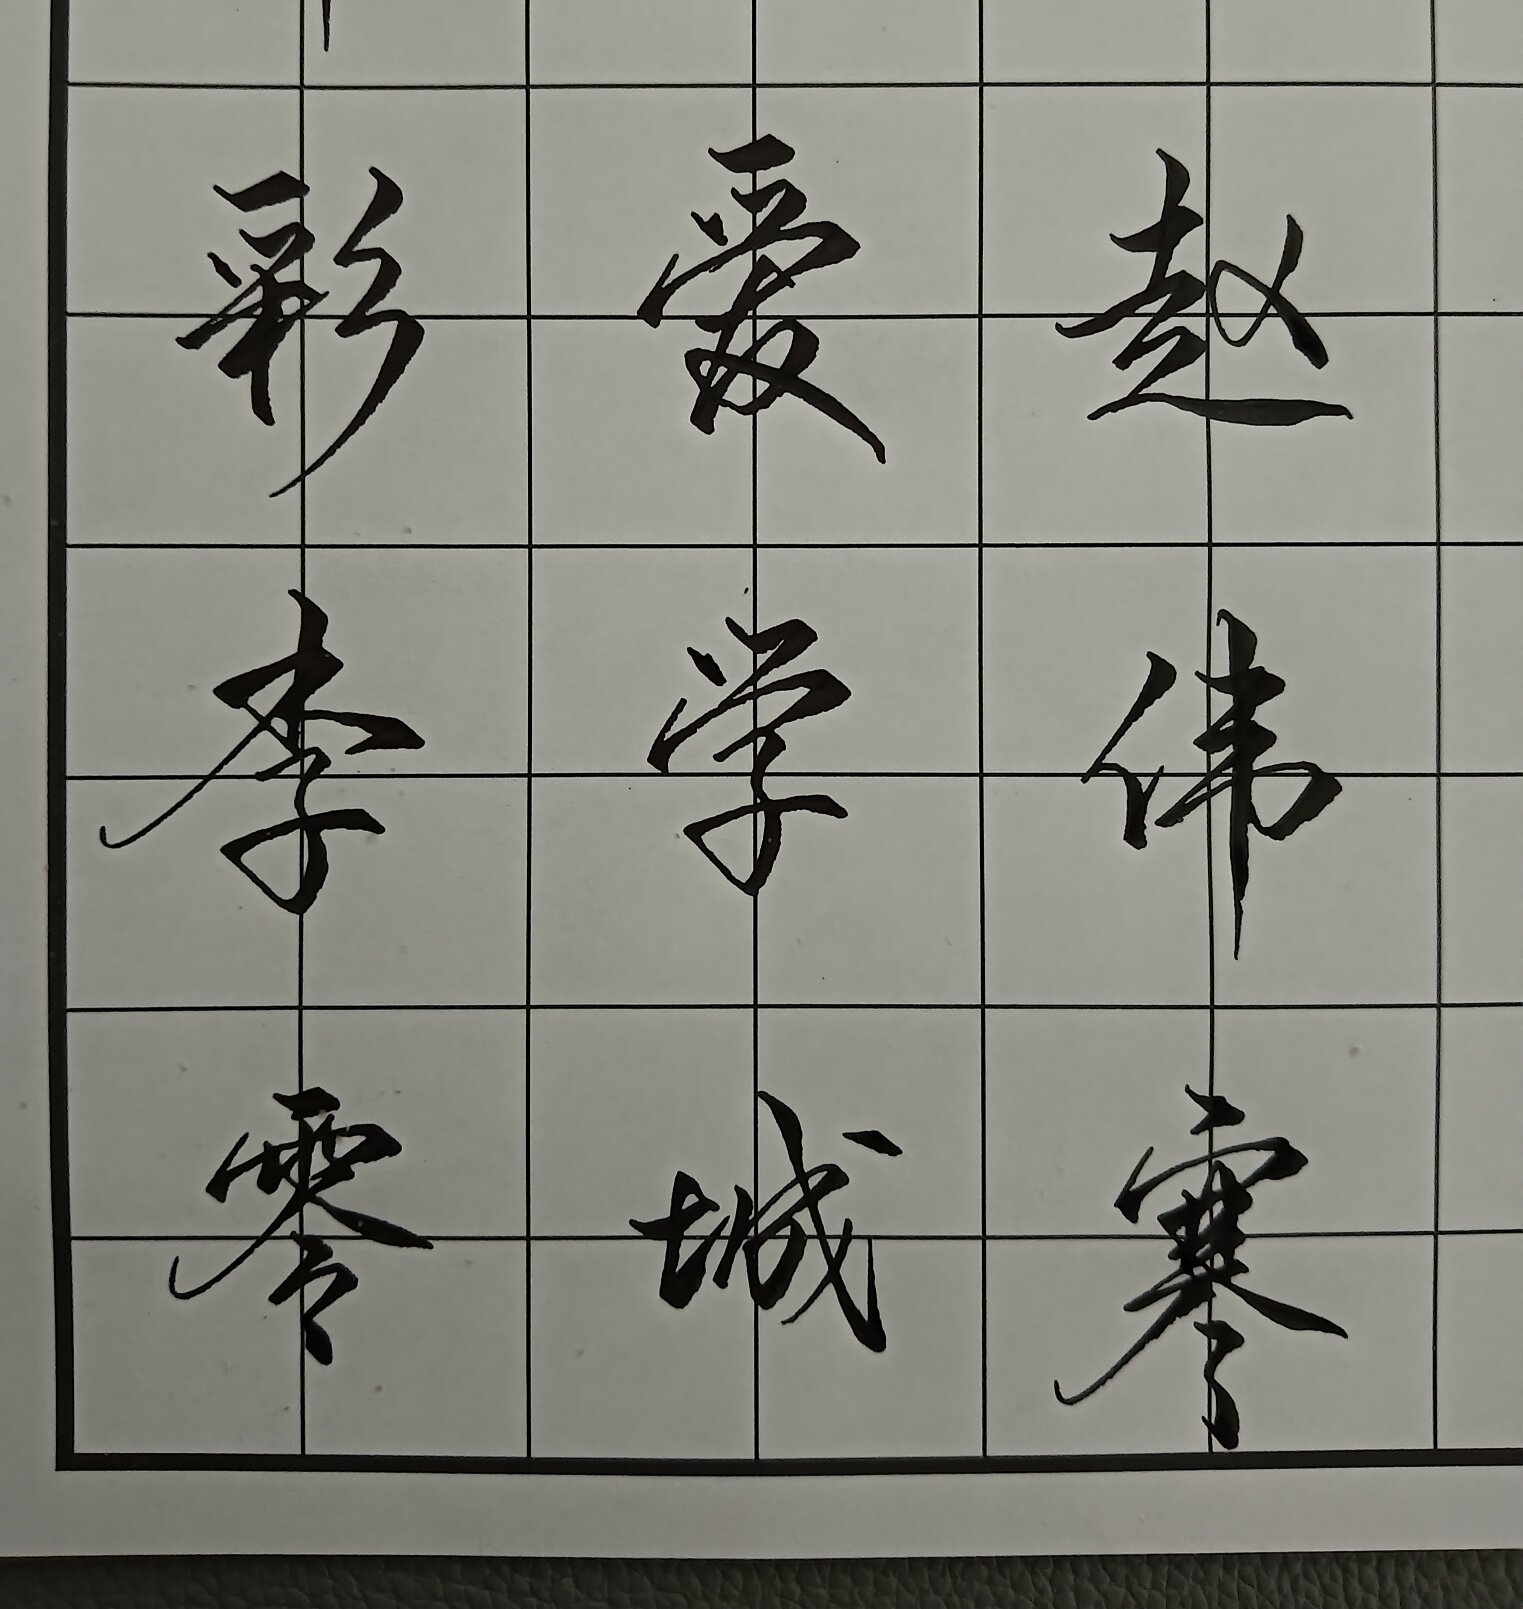 彩爱赵
李学伟
零城寒